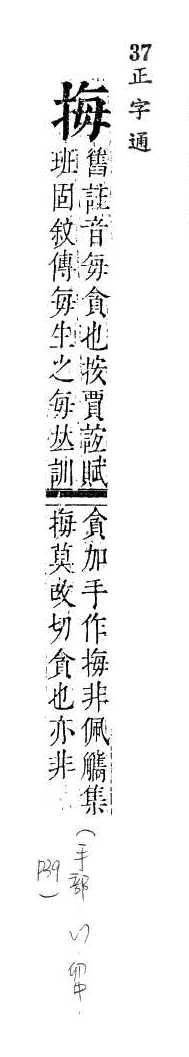 37正字通
挴
舊註音每貪也按賈誼賦
班固敘傳每生之每丛訓
貪加手作挴非佩觿集
挴莫改切貪也亦非
(手部
P39)
卯中